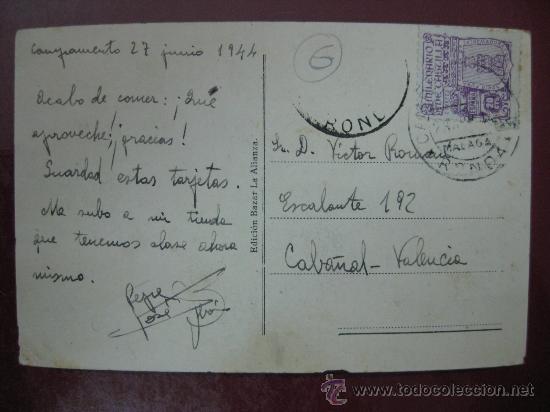 Campamento 27 junio 1944
Acabo de comer: ¡Qué
aproveche! ¡gracias!
Guardad estas tarjetas.
Me subo a mi tienda
que tenemos clase ahora
mismo.
Pepe
José
Edición Bazar La Alianza.
G
RONL
MILENARIO
DE CASTILLA
MALAGA
Sr. D. Víctor
Escalante 192
Cabañal - Valencia
© www.todocoleccion.net
www.todocoleccion.net